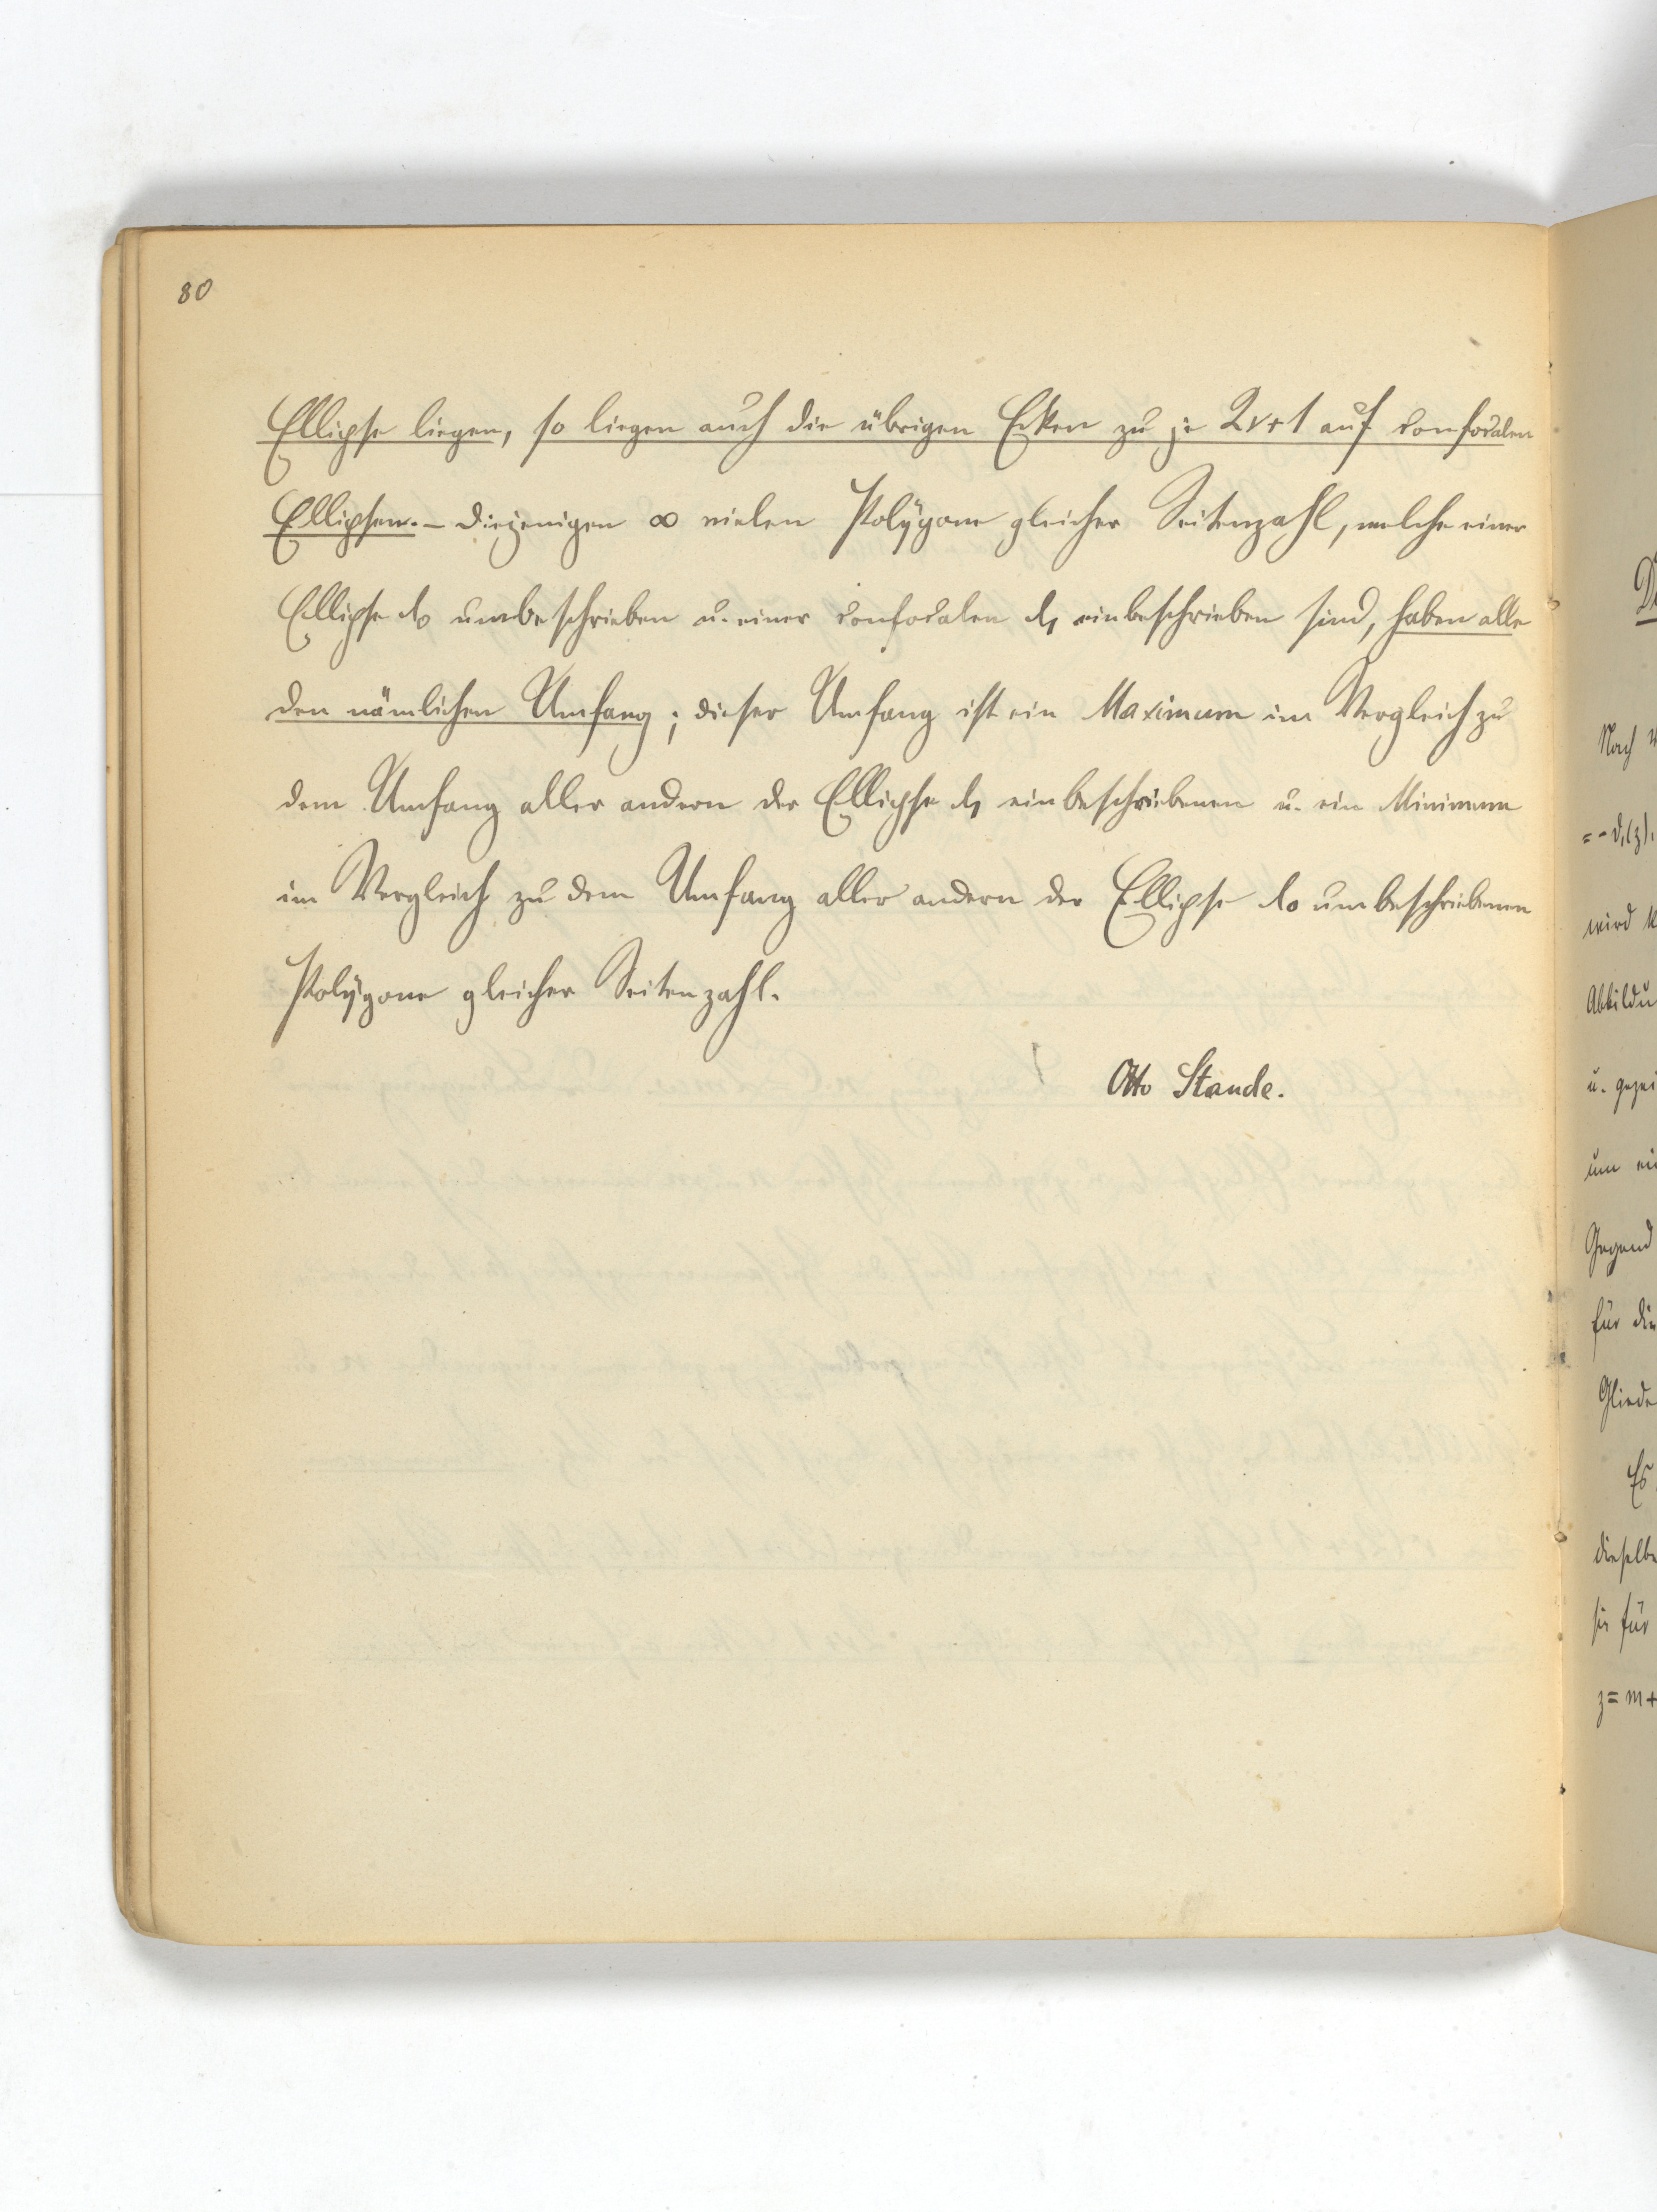 80
Ellipse liegen, so liegen auch die übrigen Ecken zu je 2ν+1 auf confocalen
Ellipsen. – Diejenigen ∞ vielen Polygone gleicher Seitenzahl, welche einer
Ellipse λ₀ umbeschrieben u. einer confocalen λ₁ einbeschrieben sind, haben alle
den nämlichen Umfang; dieser Umfang ist ein Maximum im Vergleich zu
dem Umfang aller andern der Ellipse λ₁ einbeschriebenen u. ein Minimum
im Vergleich zu dem Umfang aller andern der Ellipse λ₀ umbeschriebenen
Polygone gleicher Seitenzahl.
Otto Staude.
Nach
wird
u.
um
Gegend
für die
Es
dieselbe
sie für
z = m +